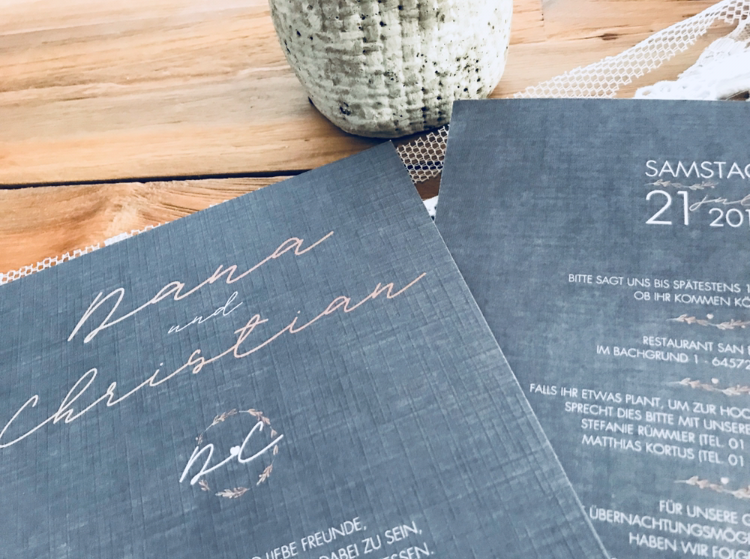 Dana
und
Christian
D C
LIEBE FREUNDE,
DABEI ZU SEIN,
SAMSTAG
21 juli 201
BITTE SAGT UNS BIS SPÄTESTENS 1
OB IHR KOMMEN KÖ
RESTAURANT SAN
IM BACHGRUND 1 - 64572
FALLS IHR ETWAS PLANT, UM ZUR HOC
SPRECHT DIES BITTE MIT UNSERE
STEFANIE RÜMMLER (TEL. 01
MATTHIAS KORTUS (TEL. 01
FÜR UNSERE G
ÜBERNACHTUNGSMÖG
HABEN WIR FOLG